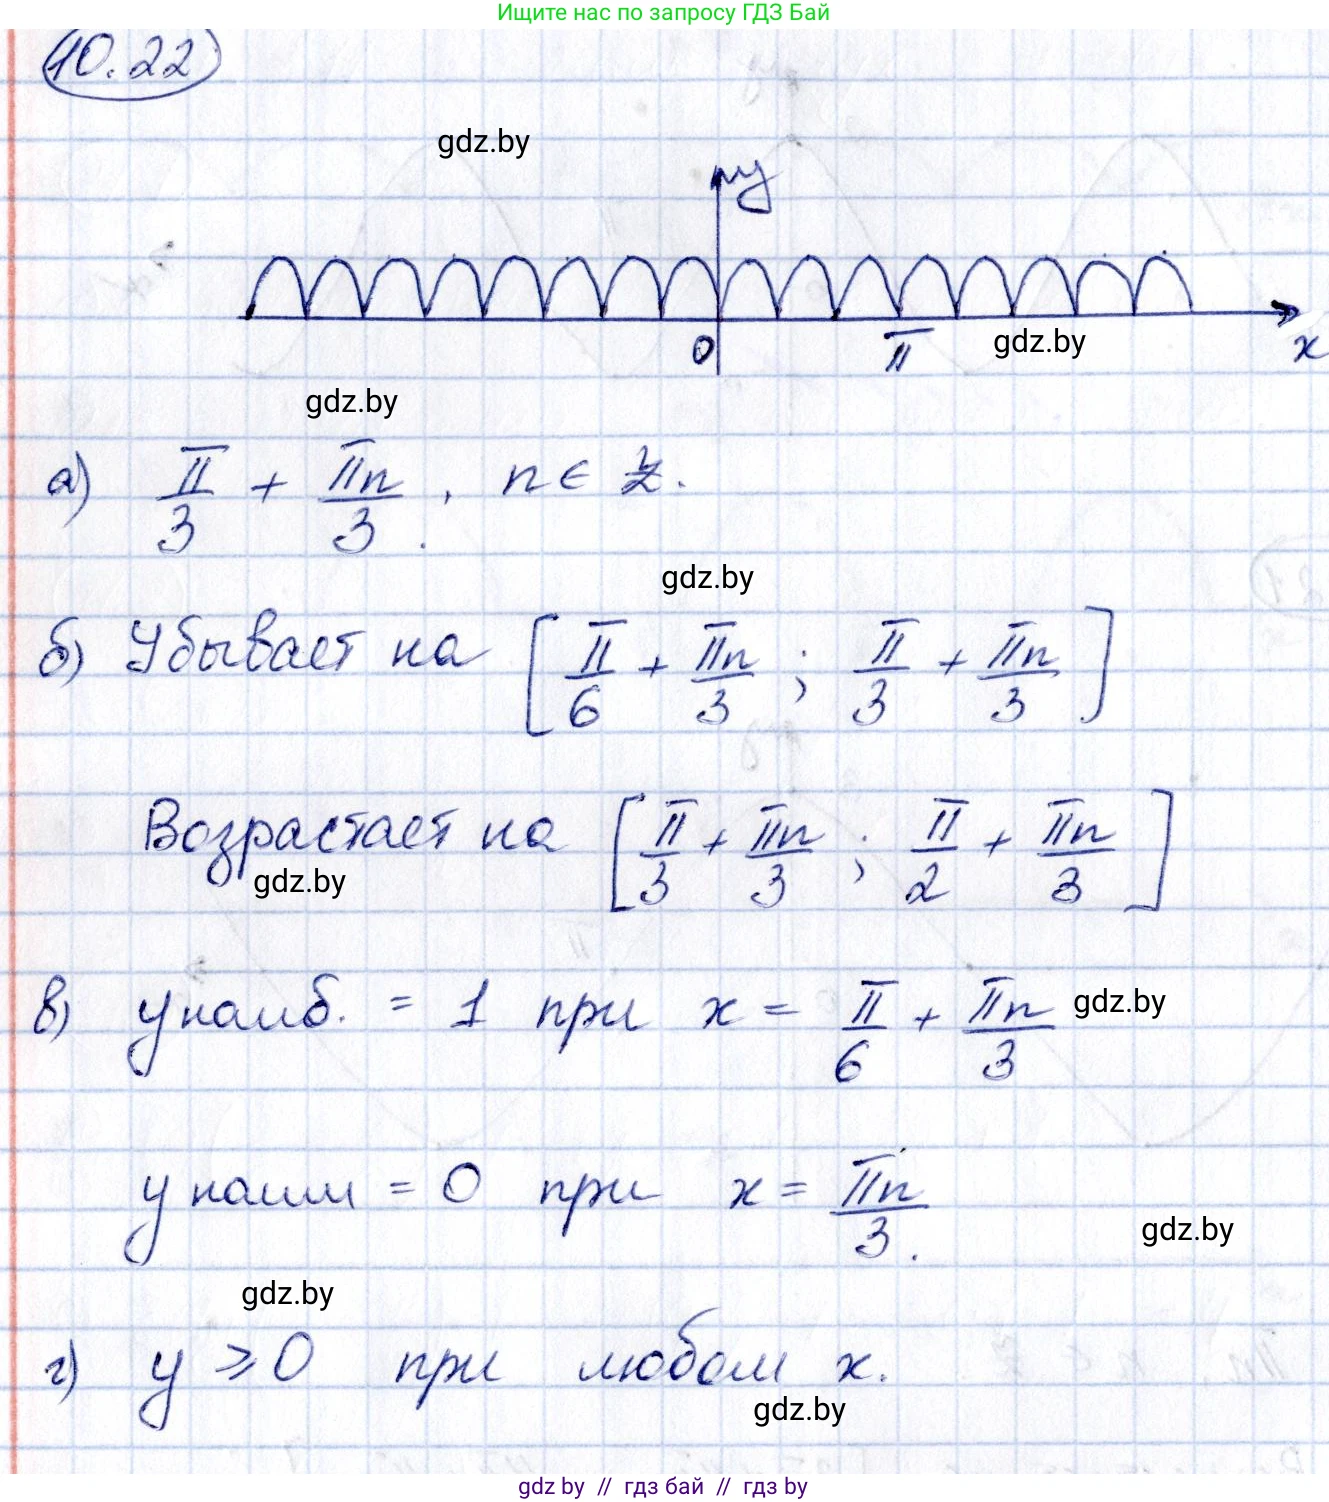 Ищите нас по запросу ГДЗ Бай
10.22
gdz.by
y
0 π x
gdz.by
gdz.by
а) π/3 + πn/3, n ∈ Z.
gdz.by
б) Убывает на [π/6 + πn/3; π/3 + πn/3]
Возрастает на [π/3 + πn/3; π/2 + πn/3]
gdz.by
в) y наиб. = 1 при x = π/6 + πn/3
gdz.by
y наим = 0 при x = πn/3.
gdz.by
gdz.by
г) y ⩾ 0 при любом x.
gdz.by
gdz by // гдз бай // гдз by